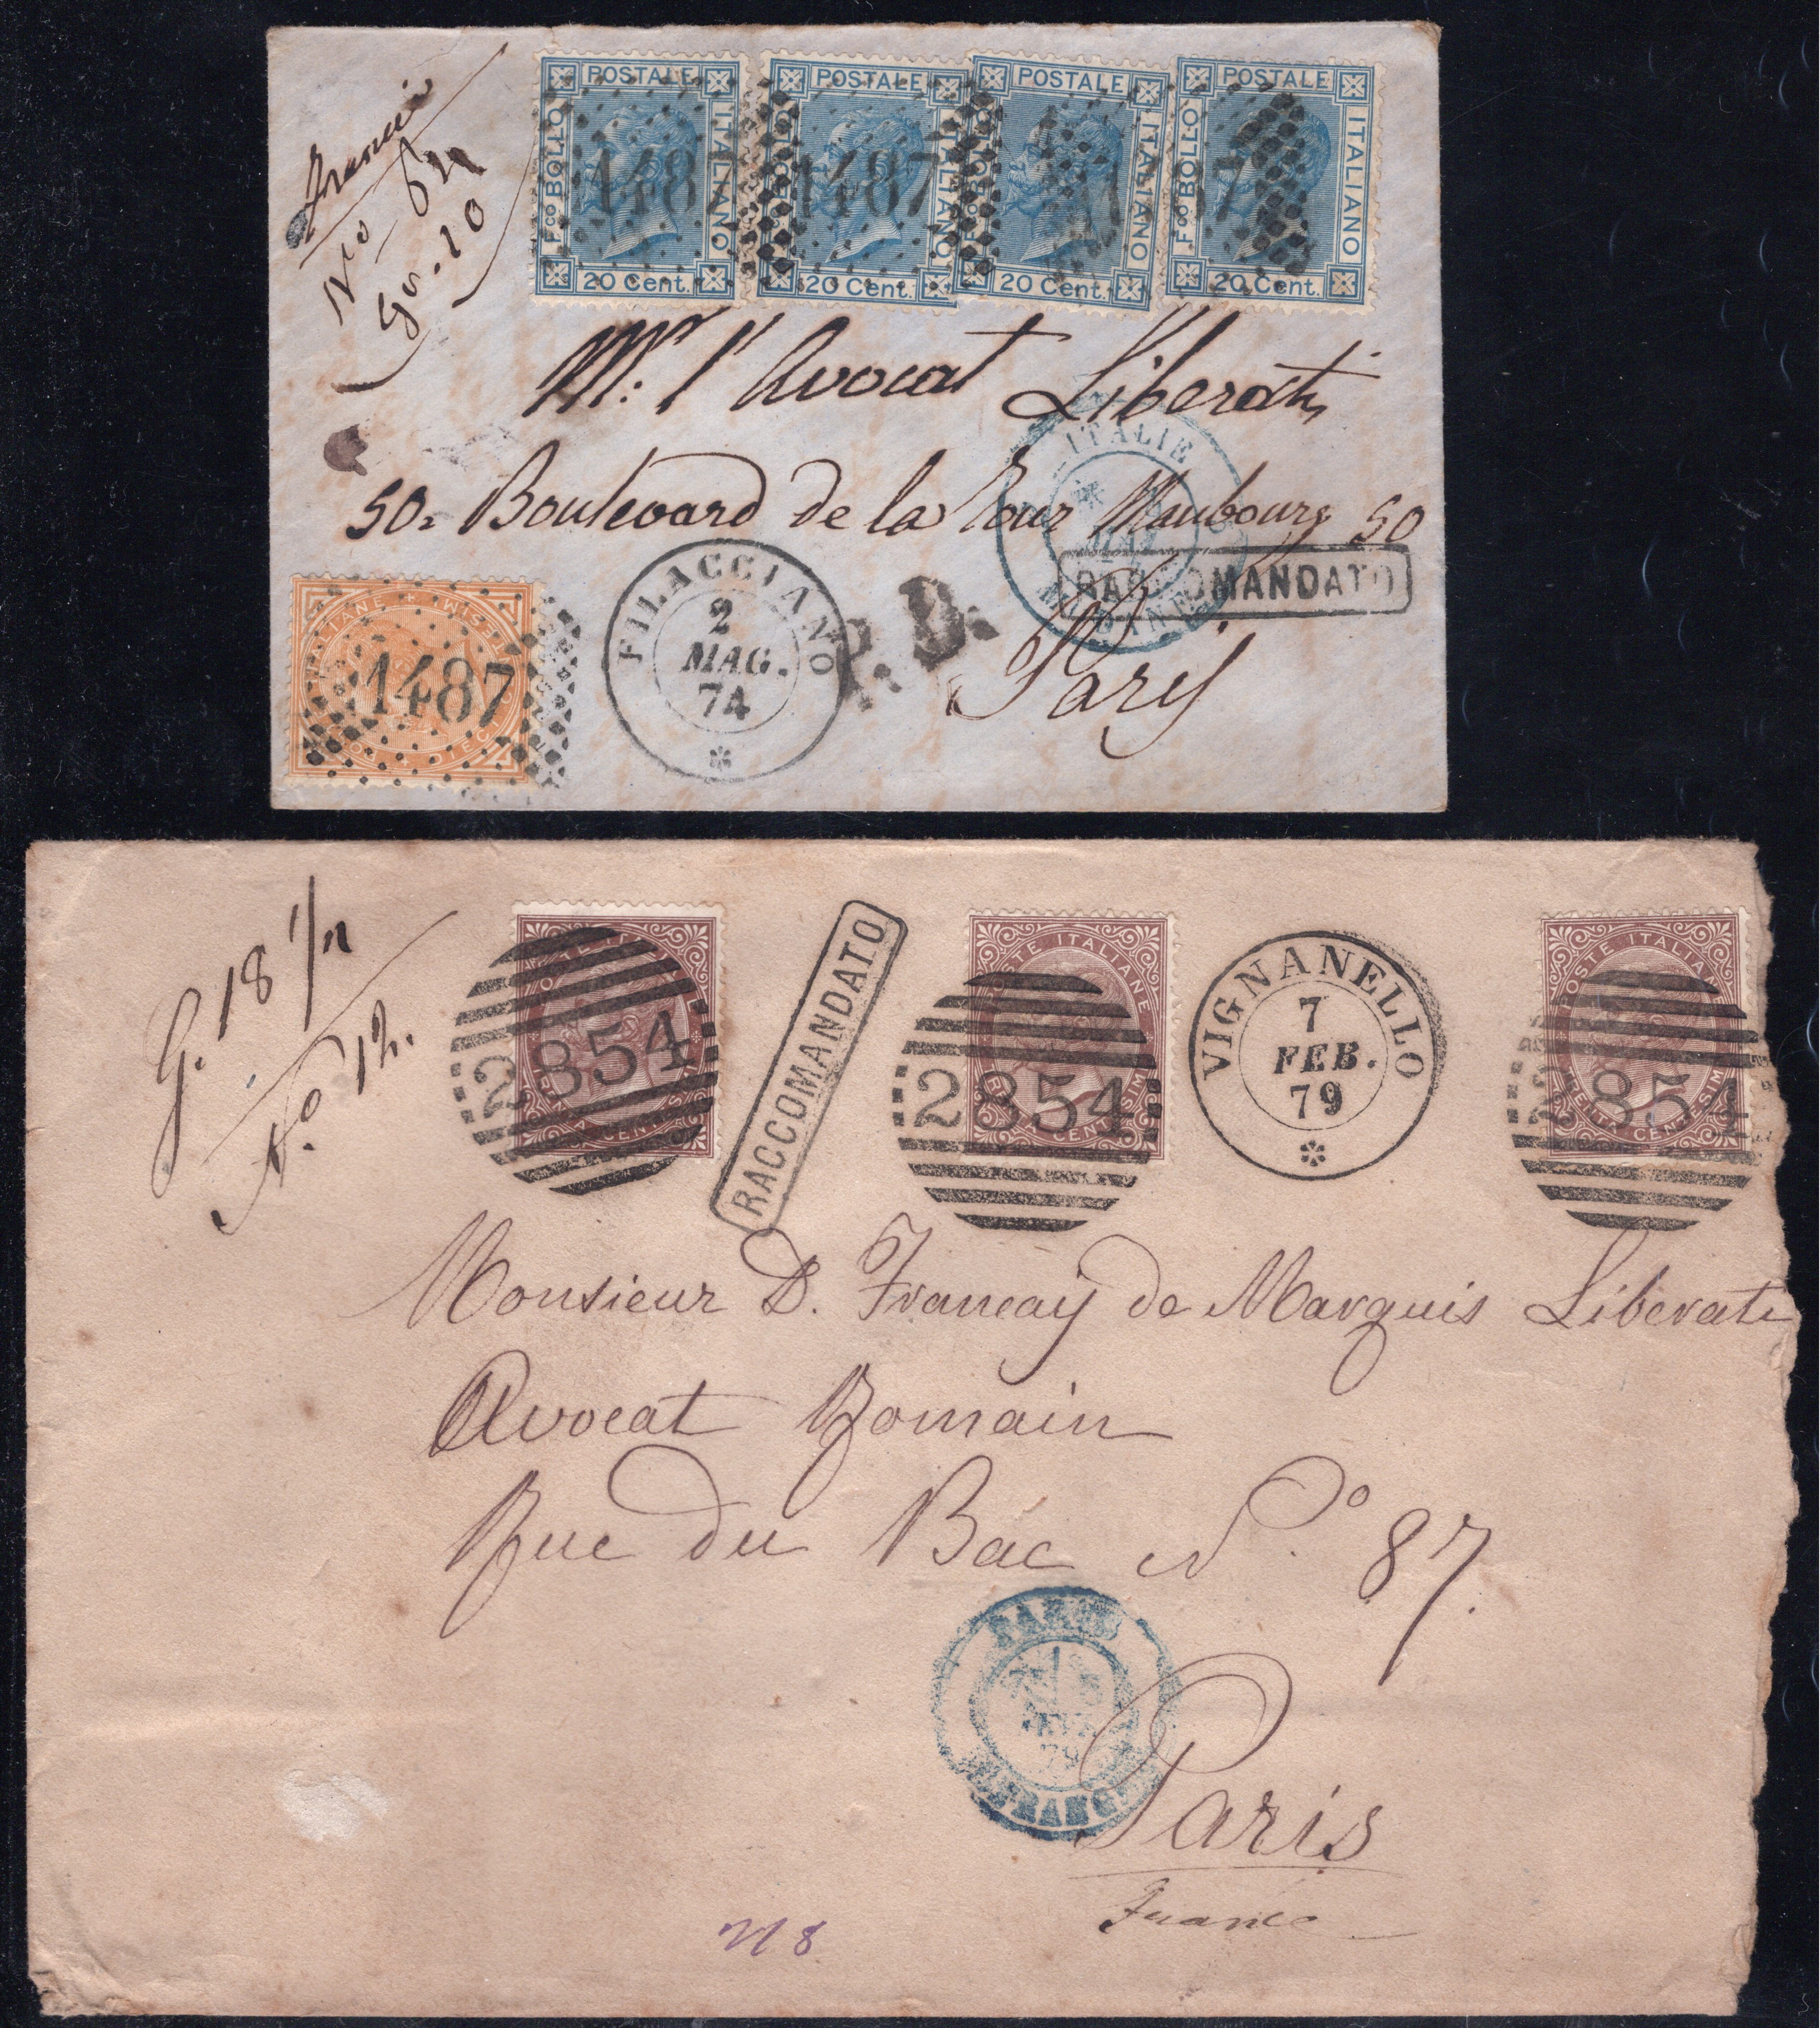 Francia
No 64
Gr. 10
POSTALE
Fco BOLLO
ITALIANO
20 Cent.
1487
POSTALE
Fco BOLLO
ITALIANO
20 Cent.
1487
POSTALE
Fco BOLLO
ITALIANO
20 Cent.
POSTALE
Fco BOLLO
ITALIANO
20 Cent.
87
Mr. l'Avocat Liberati
50. Boulevard de la Tour Maubourg 50
ITALIE
RACCOMANDATO
FILACCIANO
2
MAG.
74
P.D.
Paris
1487
G. 18 1/2
No 12.
POSTE ITALIANE
2854
RACCOMANDATO
POSTE ITALIANE
2854
VIGNANELLO
7
FEB.
79
POSTE ITALIANE
TRENTA CENTESIMI
2854
Monsieur D. Français de Marquis Liberati
Avocat Romain
Rue du Bac No. 87.
PARIS
79
Paris
France